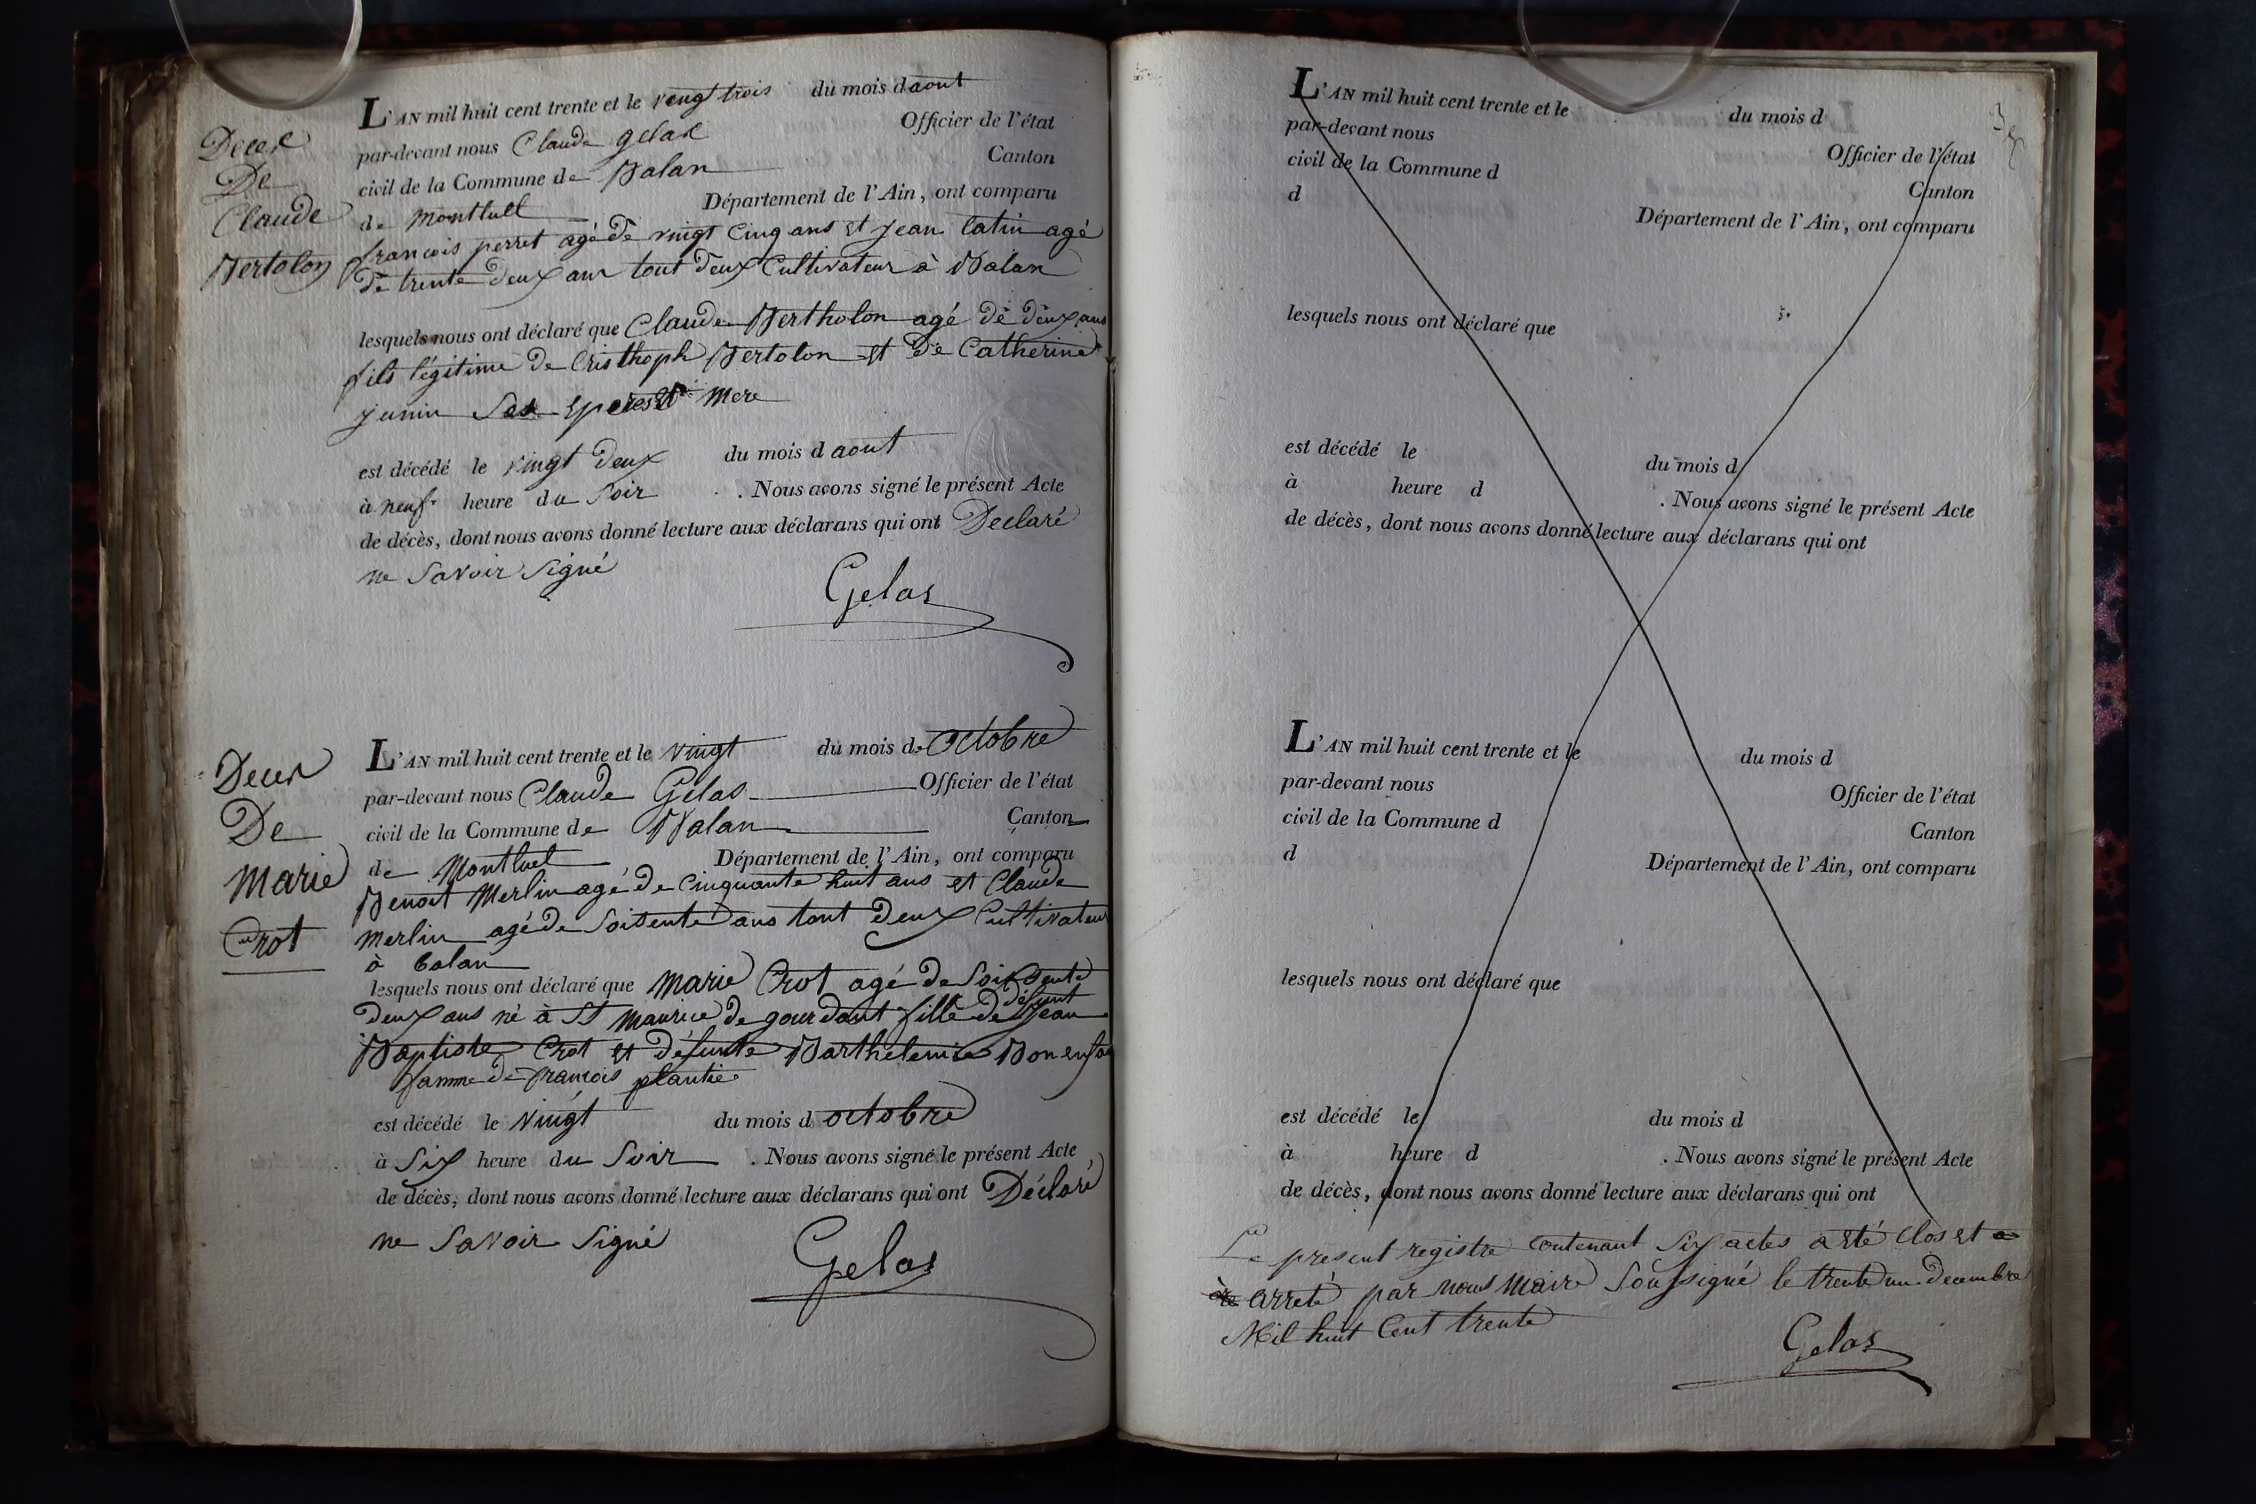 Deces
De
Claude
Bertolon
L'AN mil huit cent trente et le vengt trois du mois d aout
par-devant nous Claude gelas Officier de l'état
civil de la Commune de Balan Canton
de Montluel Département de l'Ain, ont comparu
francois perret agé de vingt Cinq ans et jean latin agé
de trente deux ans tout deux Cultivateur à Balan
lesquels nous ont déclaré que Claude Bertholon agé de deux ans
fils légitime de Cristhoph Bertolon et de Catherine
junin Ses peres et Mere
est décédé le vingt deux du mois d aout
à neuf heure du Soir . Nous avons signé le présent Acte
de décès, dont nous avons donné lecture aux déclarans qui ont Declaré
ne Savoir Signé
Gelas
Deces
De
Marie
Crot
L'AN mil huit cent trente et le vingt du mois de Octobre
par-devant nous Claude Gelas Officier de l'état
civil de la Commune de Balan Canton
de Montluel Département de l'Ain, ont comparu
Benoit Merlin agé de Cinquante huit ans et Claude
Merlin agé de Soisente ans tout deux Cultivateur
à balan
lesquels nous ont déclaré que Marie Crot agé de Soissente
deux ans né à St Maurice de gourdant fille de défunt Jean
Baptiste Crot et défunte Barthelemie Bonenfan
famme de francois plantie
est décédé le Vingt du mois d octobre
à Six heure du Soir . Nous avons signé le présent Acte
de décès, dont nous avons donné lecture aux déclarans qui ont Déclaré
ne Savoir Signé
Gelas
L'AN mil huit cent trente et le du mois d
par-devant nous Officier de l'état
civil de la Commune d Canton
d Département de l'Ain, ont comparu
lesquels nous ont déclaré que
est décédé le du mois d
à heure d . Nous avons signé le présent Acte
de décès, dont nous avons donné lecture aux déclarans qui ont
L'AN mil huit cent trente et le du mois d
par-devant nous Officier de l'état
civil de la Commune d Canton
d Département de l'Ain, ont comparu
lesquels nous ont déclaré que
est décédé le du mois d
à heure d . Nous avons signé le présent Acte
de décès, dont nous avons donné lecture aux déclarans qui ont
Le present registre contenant Six actes a eté Clos et a
arreté par nous Maire Soussigné le trente un decembre
Mil huit Cent trente
Gelas